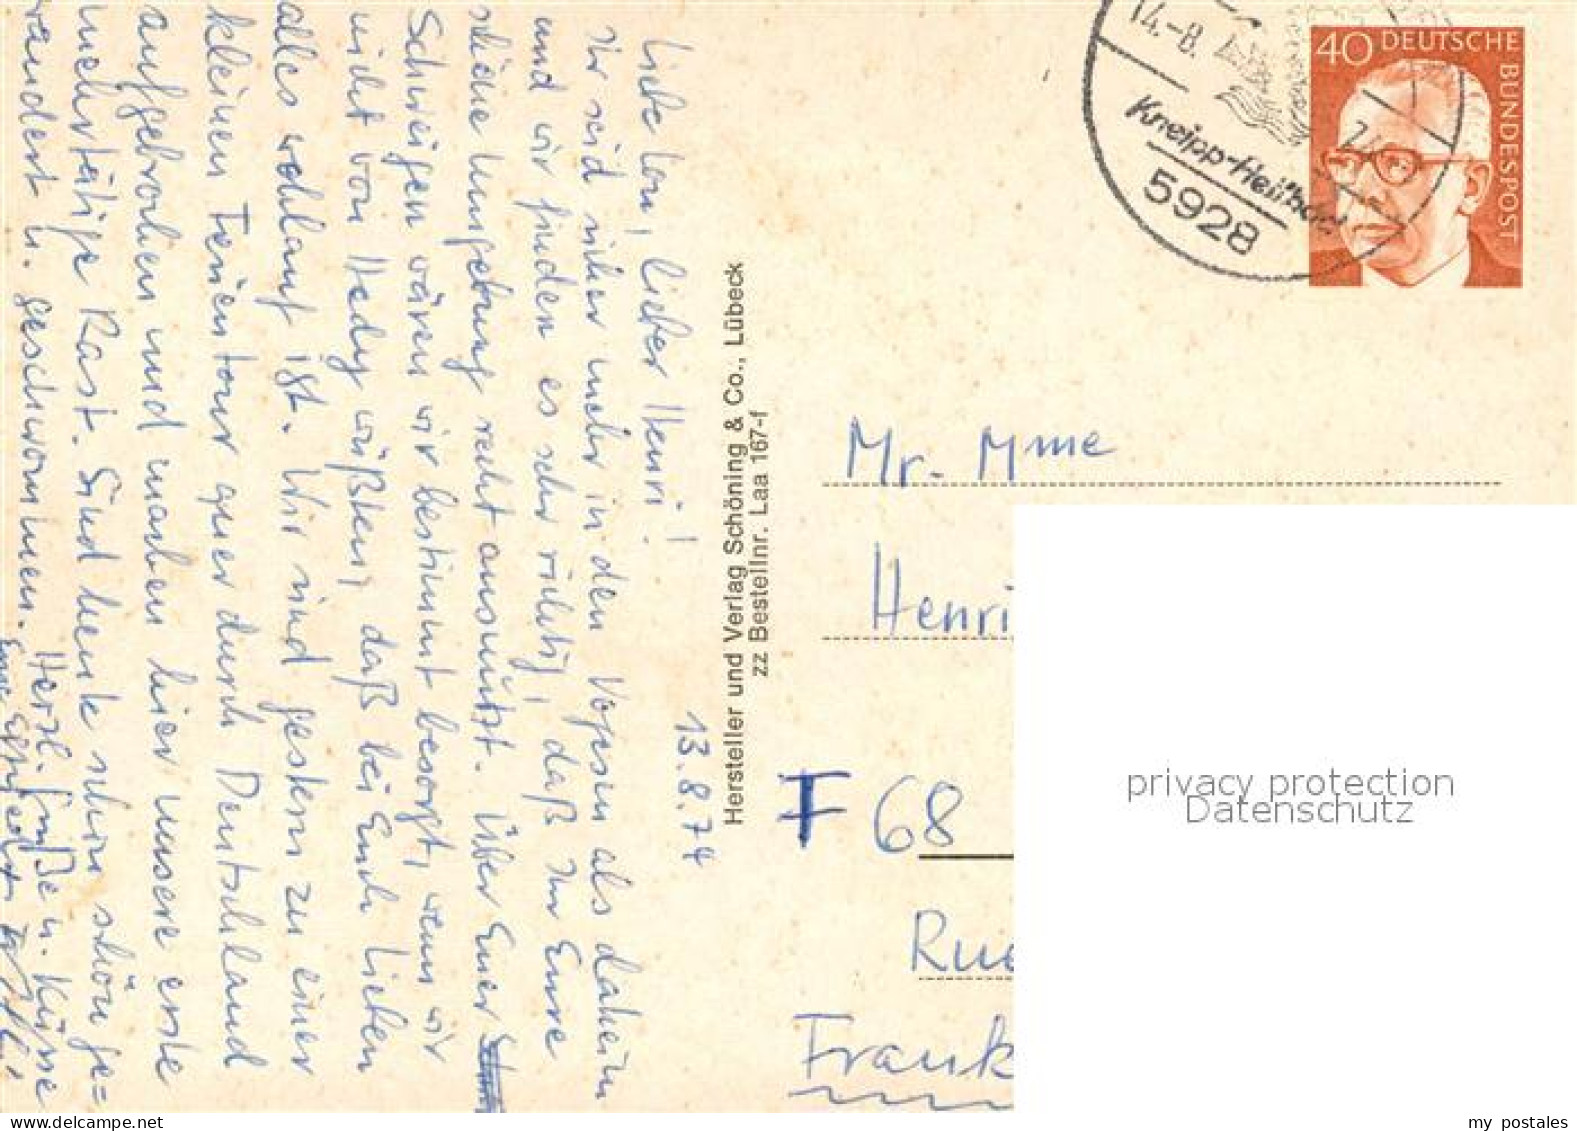 13.8.74
Liebe Loni, lieber Henri!
Ihr seid sicher mehr in den Vogesen als daheim
und wir finden es sehr richtig, daß Ihr Eure
schöne Umgebung recht ausnützt. Über Euer
Schweigen wären wir bestimmt besorgt, wenn wir
nicht von Hedy wüßten, daß bei Euch Lieben
alles wohlauf ist. Wir sind gestern zu einer
kleinen Ferientour quer durch Deutschland
aufgebrochen und machen hier unsere erste
mehrtätige Rast. Sind heute schon schön ge=
wandert u. geschwommen.
Herzl. Grüße u. Küsse
Eure
Hersteller und Verlag Schöning & Co., Lübeck
zz Bestellnr. Laa 167-f
14.-8.74
Kneipp-Heilbad
5928
40 DEUTSCHE BUNDESPOST
Mr. Mme
Henri
F 68
Rue
Frank
privacy protection
Datenschutz
my postales